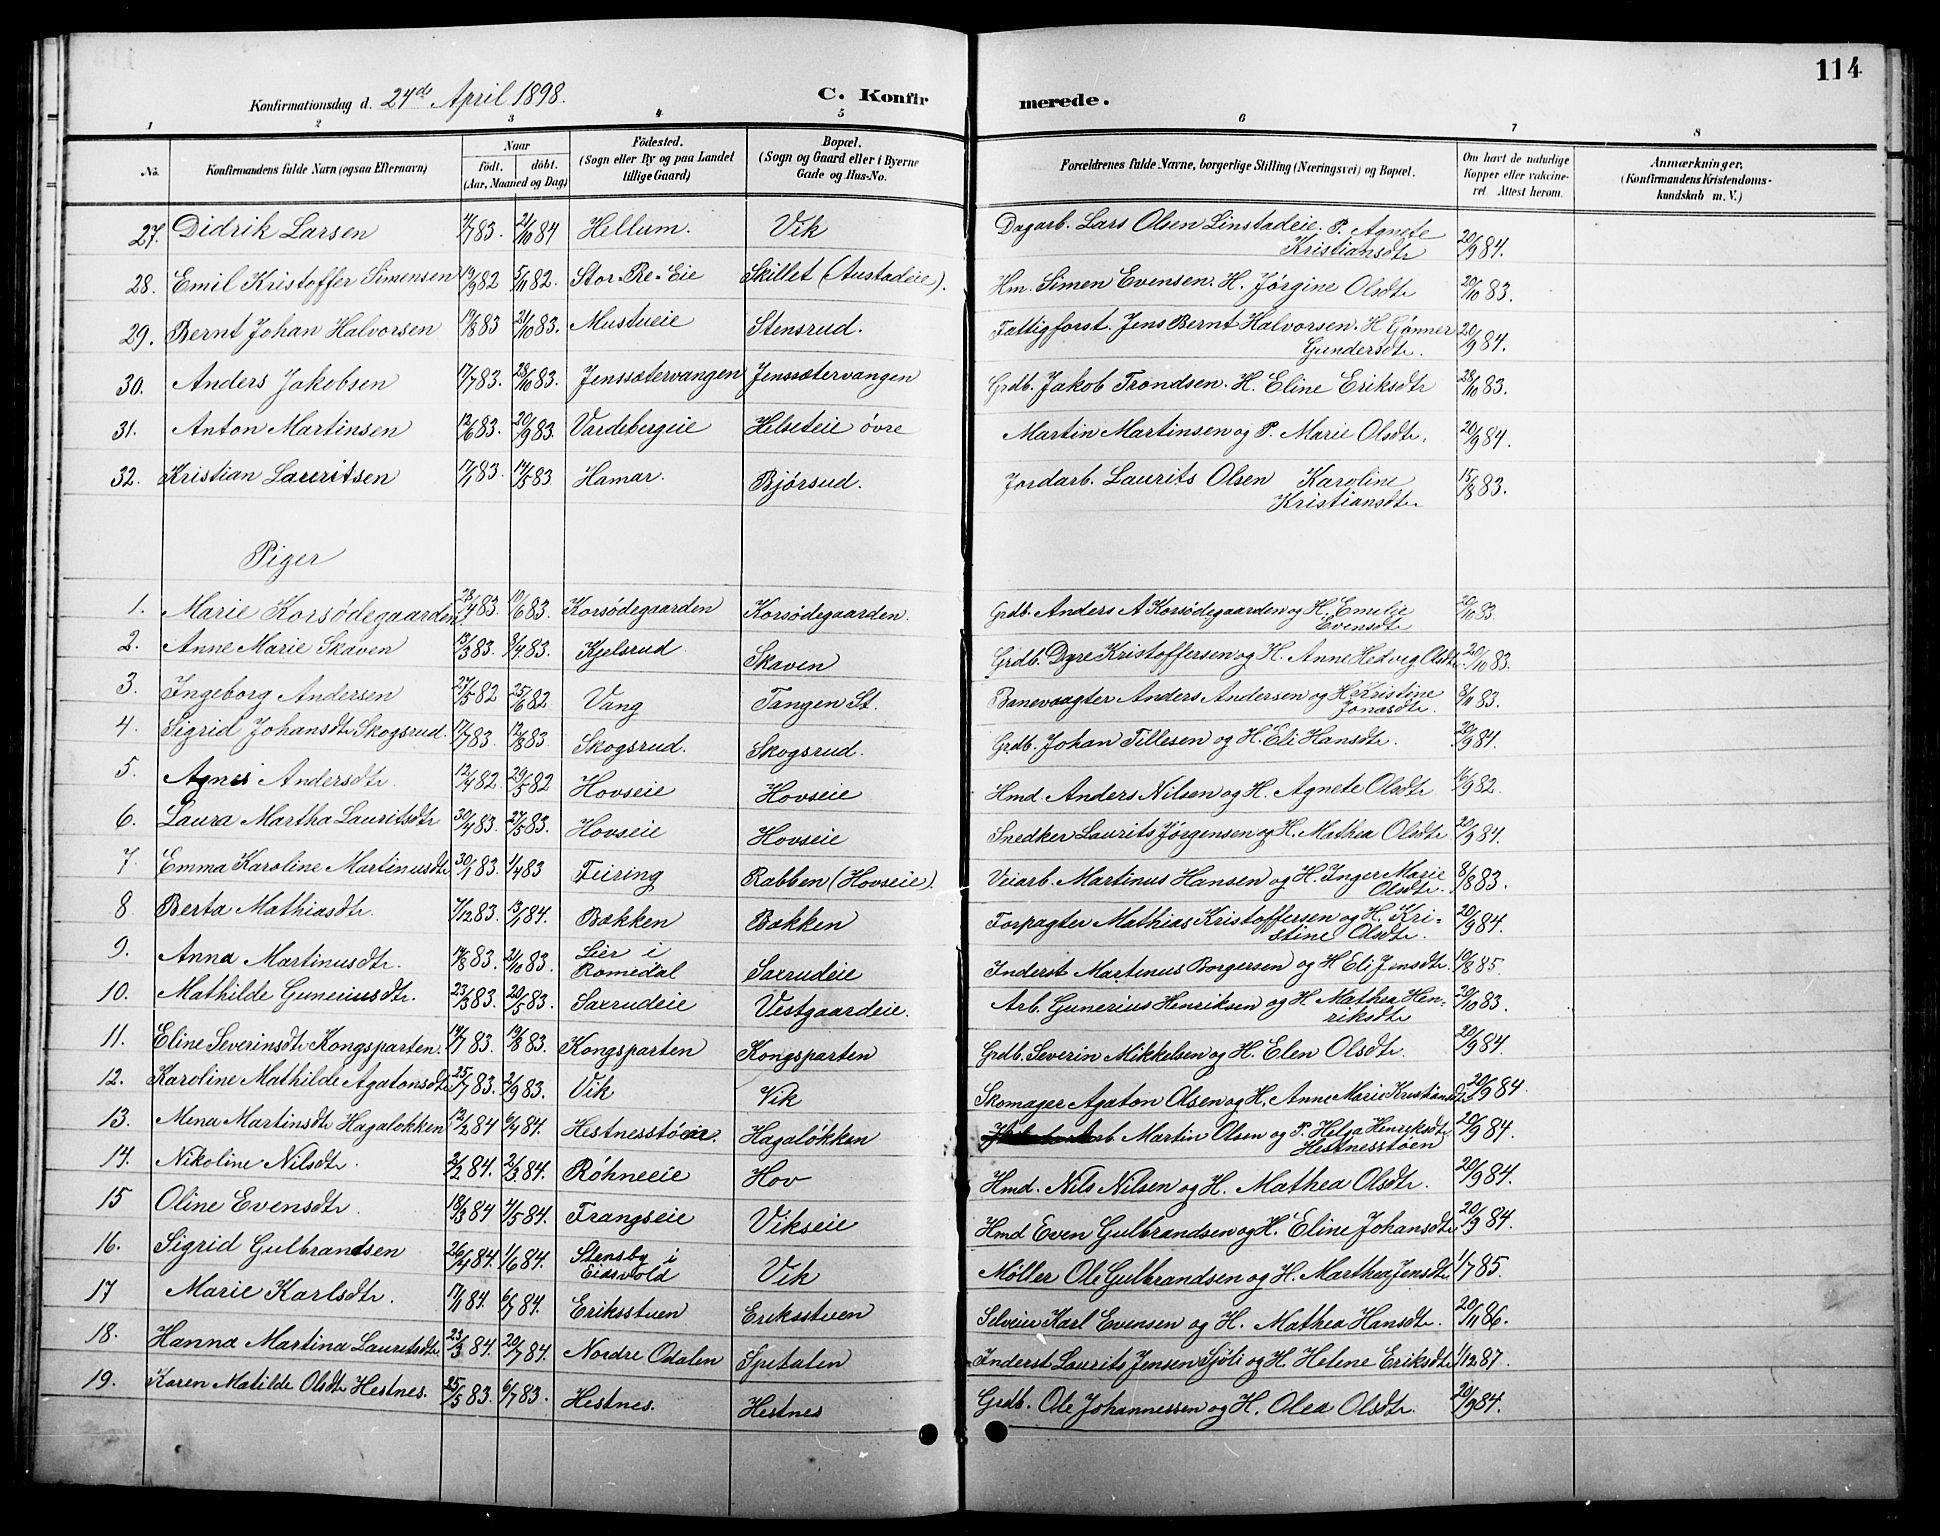 114
Konfirmationsdag d. 24de April 1898. C. Konfir merede.
1 2 3 4 5 6 7 8
No. Konfirmandens fulde Navn (ogsaa Efternavn) Naar født. døbt. (Aar, Maaned og Dag) Födested. (Sogn eller By og paa Landet tillige Gaard) Bopæl. (Sogn og Gaard eller i Byerne Gade og Hus-No. Forældrenes fulde Navne, borgerlige Stilling (Næringsvei) og Bopæl. Om havt de naturlige Kopper eller vakcineret. Attest herom. Anmærkninger. (Konfirmandens Kristendomskundskab m. V.)
27. Didrik Larsen 4/7 83. 21/10 84 Hellum. Vik Dagarb. Lars Olsen Linstadeie. P. Agnete Kristiansdtr 20/9 84.
28. Emil Kristoffer Simensen 19/9 82 5/11 82. Stor-Re-Eie Skillet (Austadeie). Hm. Simen Evensen. H. Jørgine Olsdtr 20/10 83.
29. Bernt Johan Halvorsen 19/8 83 21/10 83. Mustueie Stensrud. Fattigforst. Jens Bernt Halvorsen. H Gønner Gundersdtr. 20/9 84.
30. Anders Jakobsen 17/7 83. 28/10 83. Jenssætervangen Jenssætervangen Grdb. Jakob Trondsen. H. Eline Eriksdtr 28/10 83.
31. Anton Martinsen 12/6 83. 30/9 83. Vardebergeie Helseteie øvre Martin Martinsen og P. Marie Olsdtr. 20/9 84.
32. Kristian Lauritsen 17/1 83. 14/5 83 Hamar. Bjørsud. Jordarb. Laurits Olsen Karoline Kristiansdtr. 15/8 83.
Piger
1. Marie Korsødegaarden 28/4 83. 10/6 83. Korsødegaarden Korsødegaarden. Grdb. Anders A Korsødegaarden og H. Emelie Evensdtr 20/10 83.
2. Anne Marie Skaven 13/3 83. 8/4 83. Kjelsrud Skaven Grdb. Dyre Kristoffersen og H. Anne Hedvig Olsdtr. 20/10 83.
3. Ingeborg Andersen 27/5 82 25/6 82 Vang Tangen St. Banevogter Anders Andersen og H. Kristine Jonasdtr. 8/11 83.
4. Sigrid Johansdtr Skogsrud. 17/7 83. 12/8 83. Skogsrud. Skogsrud. Grdb. Johan Tillesen og H. Eli Hansdtr. 20/9 84.
5. Agnes Andersdtr. 12/4 82. 29/5 82 Hovseie Hovseie Hmd. Anders Nilsen og H. Agnete Olsdtr 16/9 82.
6. Laura Martha Lauritsdtr 30/4 83. 27/5 83. Hovseie Hovseie Snedker Laurits Jørgensen og H. Mathea Olsdtr 20/9 84.
7. Emma Karoline Martinusdtr 30/1 83. 1/4 83 Feiring Rabben (Hovseie). Veiarb. Martinus Hansen og H. Inger Marie Olsdtr. 8/8 83.
8. Berta Mathiasdtr. 7/12 83. 13/1 84. Bakken Bakken Forpagter Mathias Kristoffersen og H. Kristine Olsdtr. 20/9 84.
9. Anna Martinusdtr. 14/8 83. 21/10 83. Lier i Romedal Saxrudeie Inderst Martinus Borgersen og H Eli Jensdtr. 19/8 85.
10. Mathilde Guneriusdtr. 23/3 83. 20/5 83. Saxrudeie Vestgaardeie. Arb. Gunerius Henriksen og H. Mathea Henriksdtr 20/10 83.
11. Eline Severinsdtr Kongsparten. 14/7 83. 19/8 83. Kongsparten Kongsparten Grdb. Severin Mikkelsen og H. Elen Olsdtr. 20/9 84.
12. Karoline Mathilde Agatonsdtr 25/7 83. 2/9 83. Vik Vik Skomager Agaton Olsen og H. Anne Marie Kristiansdtr 20/9 84.
13. Mina Martinsdtr Hagaløkken 12/2 84 6/4 84. Hestnesstøen. Hagaløkken arb Martin Olsen og P. Helga Henriksdtr Hestnesstøen 20/9 84.
14. Nikoline Nilsdtr. 2/2 84. 2/3 84. Røhneeie Hov Hmd. Nils Nilsen og H. Mathea Olsdtr. 20/9 84.
15 Oline Evensdtr. 18/3 84 4/5 84. Frangseie Vikseie Hmd Even Gulbrandsen og H. Eline Johansdtr. 20/9 84.
16. Sigrid Gulbrandsen 26/4 84. 1/6 84. Stensby i Eidsvold Vik Møller Ole Gulbrandsen og H. Marthea Jensdtr. 1/7 85.
17 Marie Karlsdtr. 17/1 84. 6/7 84. Eriksstuen Eriksstuen Selveier Karl Evensen og H. Mathea Hansdtr. 20/11 86.
18. Hanna Martina Lauritsdtr 23/3 84. 20/7 84. Nordre Odalen Spetalen Inderst Laurits Jensen Sjøli og H. Helene Eriksdtr 1/12 87.
19. Karen Matilde Olsdtr Hestnes. 25/5 83. 6/7 83. Hestnes. Hestnes Grdb. Ole Johannessen og H. Olea Olsdtr. 20/9 84.